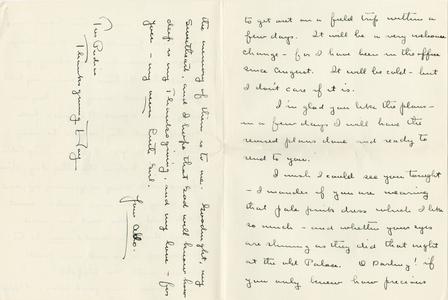 to get out on a field trip within a
few days. It will be a very welcome
change - for I have been in the office
since August. It will be cold - but
I don't care if it is.
I'm glad you like the plans -
in a few days I will have the
revised plans done and ready to
send to you.
I wish I could see you tonight
- I wonder if you are wearing
that pale pink dress which I like
so much - and whether your eyes
are shining as they did that night
at the old Palace. O Darling! if
you only knew how precious
the memory of them is to me. Goodnight, my
Sweetheart, and I hope that God will know how
deep is my Thanksgiving, and my love - for
you - my own Little Girl.
Your Aldo.
Tres Piedras
Thanksgiving Day